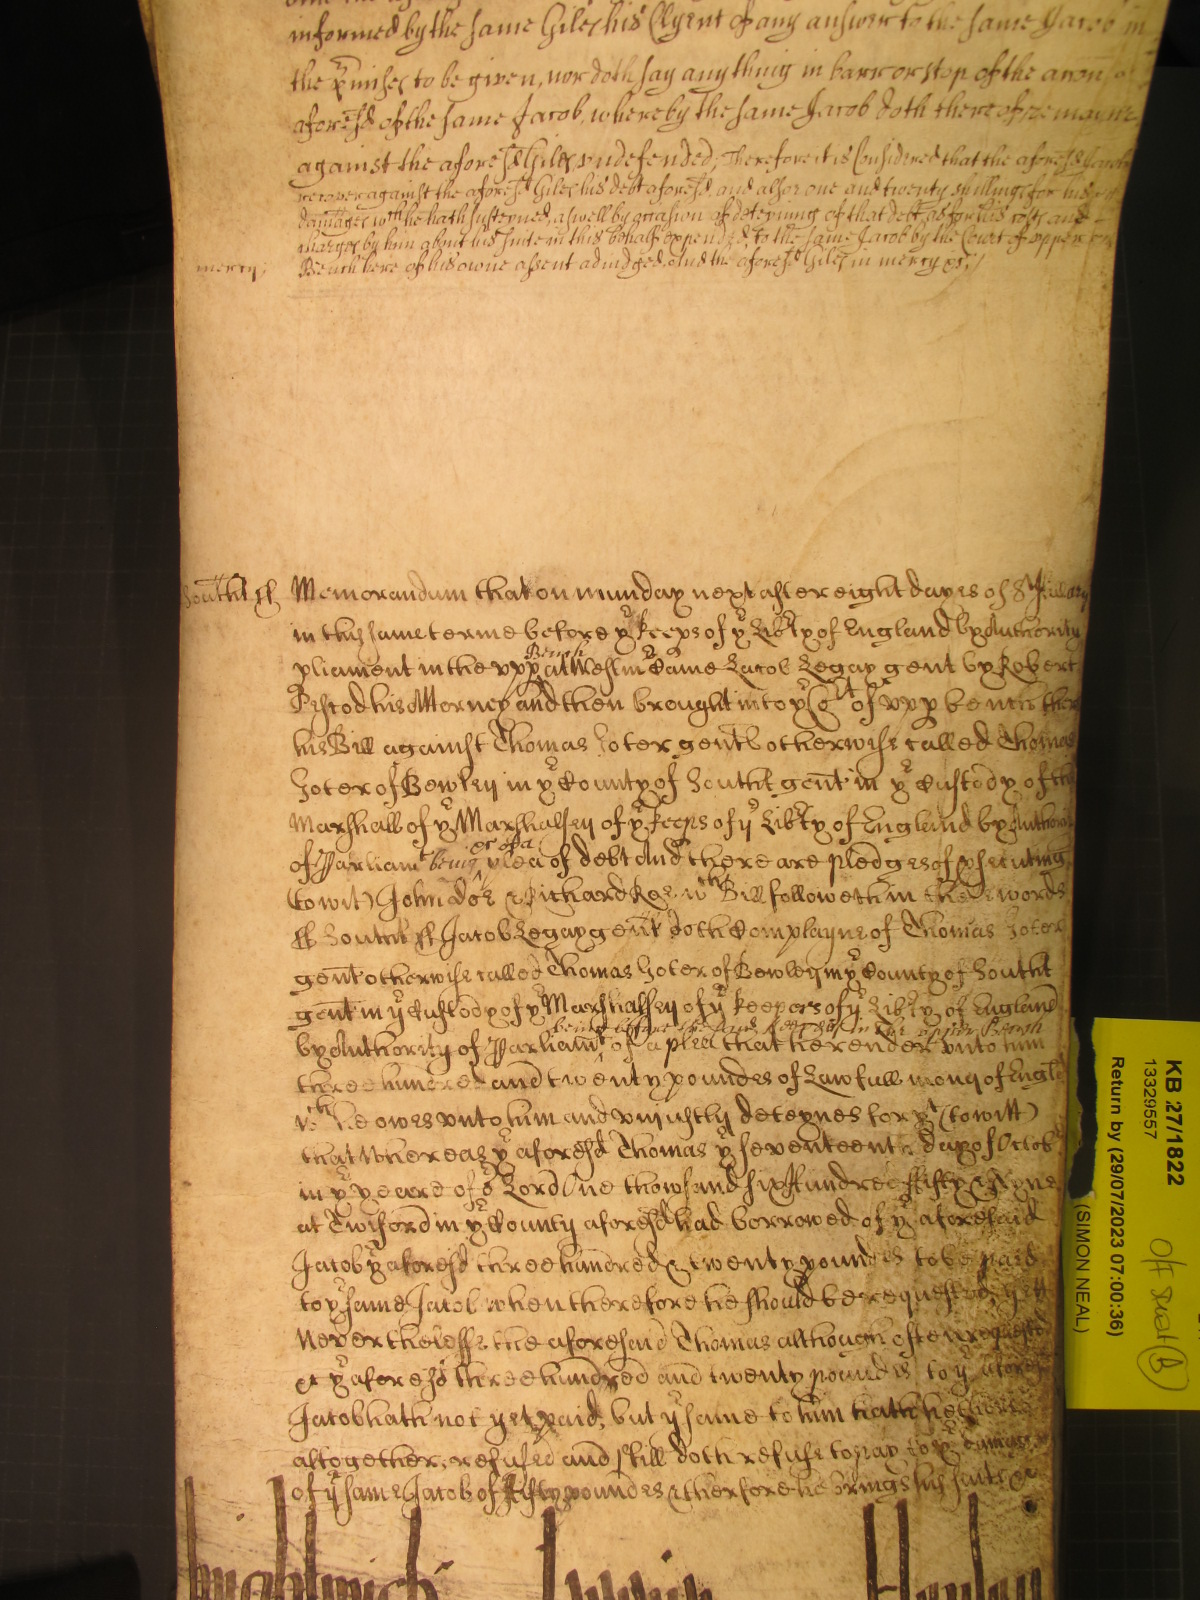 informed by the same Giles his Clyent of any answer to the same Jacob in
the p'misses to be given, nor doth say any thing in barr or stop of the accon
aforesd of the same Jacob, whereby the same Jacob doth thereof remayne
against the aforesd Giles undefended; Therefore it is Considered that the aforesd Jacob
recover against the aforesd Giles his debt aforesd. and alsoe one and twenty shillings for his
damages wch he hath susteyned, aswell by occasion of deteyning of that debt, as for his costs and
charges by him about his suite in this behalf expended, to the same Jacob by the Court of upper
mercy;
Bench here of his owne assent adiudged. And the aforesd Giles in mercy &c;/
Southt ss
Memorandum that on munday next after eight dayes of St Hillary
in this same terme before ye keeps of ye Libty of England by Authority
pliament in the upp Bench at Westm Came Jacob Legay gent by Robert
Pescod his Attorney and then brought into ye Crt of upp bench then
his Bill against Thomas Joter gent otherwise called Thomas
Joter of Bewley in ye County of Southt gent in ye Custody of the
Marshall of ye Marshalsey of ye keeps of ye Libty of England by Authori
of Parliamt being &c of a plea of debt And there are pledges of psecuting
(to wit) John Doe & Richard Roe wch Bill followeth in these words
ss Southt ss Jacob Legay gent doth Complayne of Thomas Joter
gent otherwise called Thomas Joter of Bewley in ye County of Southt
gent in ye Custody of ye Marshalsey of ye keepers of ye Libty of England
being before the said keepers in the upper Bench
by Authority of Parliamt, of a plea that he render unto him
three hundred and twenty poundes of Lawfull mony of Engld
wch he owes unto him and uniustly deteynes for yt (to witt)
that whereas ye aforesd Thomas ye seventeenth day of Octobr
in ye yeare of or Lord One thowsand six Hundred fifty & Nyne
at Twiford in ye County aforesd had borrowed of ye aforesaid
Jacob ye aforesd three hundred & twenty poundes to be paid
to ye same Jacob when therefore he should be requested yett
Neverthelesse the aforesaid Thomas although often requested
&c ye aforesd three hundred and twenty poundes to ye aforesd
Jacob hath not yet paid, but ye same to him hath hetherto
altogether refused and still doth refuse to pay to ye damage
of ye same Jacob of Fifty poundes & therefore he brings his suite &c
KB 27/1822
13329557
Return by (29/07/2023 07:00:36)
(SIMON NEAL)